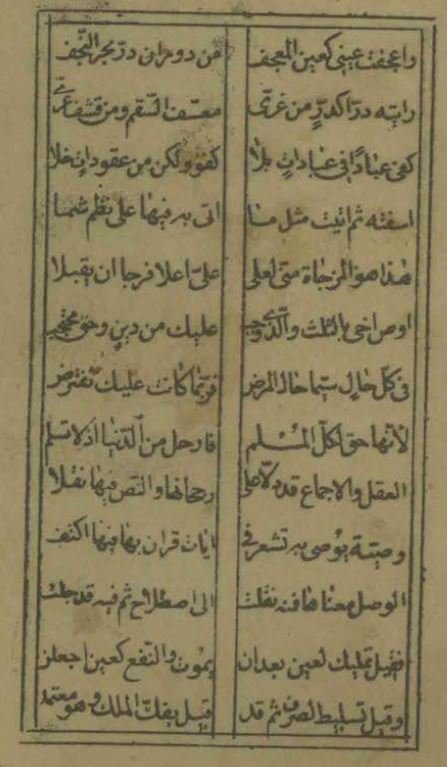 واعجفت عيني كعين المعجف من دوحران در بحر النجف
رايته درا كدر من غرى معتسف السقم ومن قشف عرى
كفى عبادا في عبادات بلا كفؤ ولكن من عقودات خلا
اسفته ثم اتيت مثل ما اتى به فيها على نظم سما
هذا هو المزجاة متى لعلى على اعلا فرجا ان يقبلا
اوص اخي بالثلث والذي وجب عليك من دين وحق
في كل حال سيما حال المرض فربما كانت عليك تفترض
لانها حق لكل المسلم فارحل من الدنيا اذ لا تسلم
العقل والاجماع قد دلا على رجحانها والنص فيها نقلا
وصية يوصى به تشعر في ايات قران بها فيها اكتف
الوصل معناها فنه نقلت الى اصطلاح ثم فيه قد جلت
فقيل تمليك لعين بعد ان يموت والنفع كعين اجعلن
وقيل تسليط لصرف ثم قد قيل بفك الملك وهو معتمد